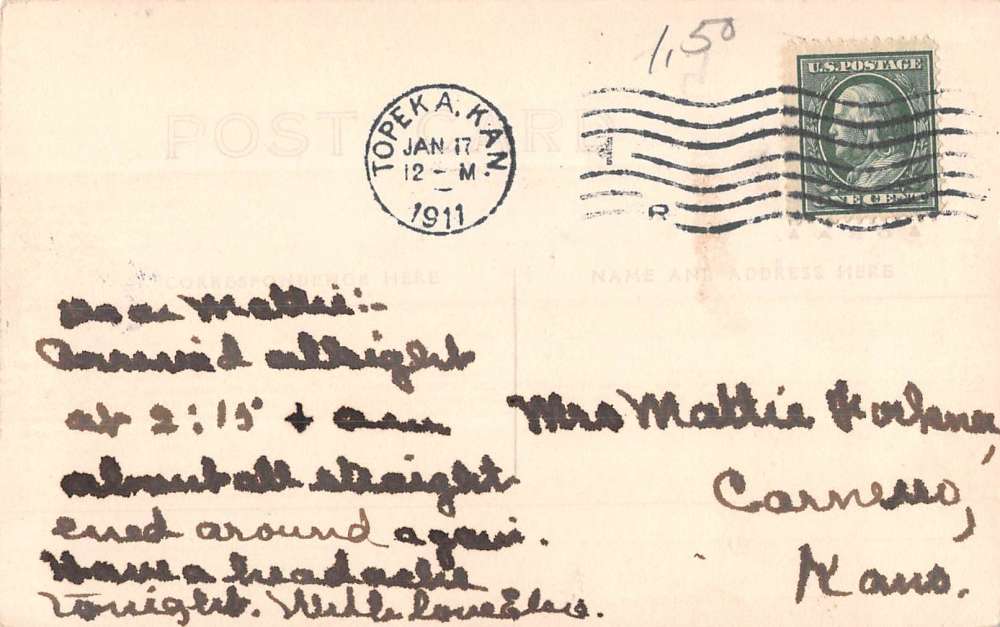 1,50
U.S.POSTAGE
ONE CENT
TOPEKA, KAN.
JAN 17
12 - M
1911
1
R
POST CARD
CORRESPONDENCE HERE
NAME AND ADDRESS HERE
Dear Mattie:-
Arrived allright
at 2:15 + am
about all straight
ened around again.
Have a headache
tonight. With love
Mrs Mattie
Carneiro,
Kans.